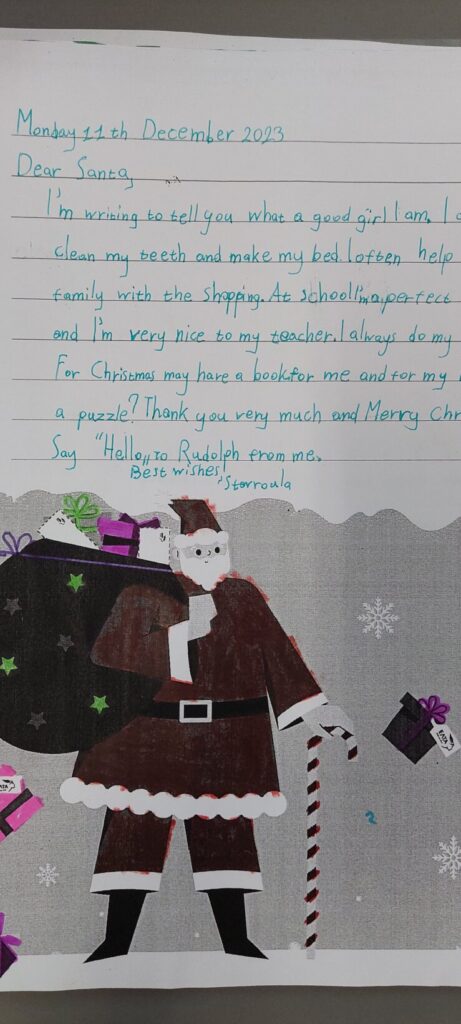 Monday 11th December 2023
Dear Santa,
I'm writing to tell you what a good girl I am. I
clean my teeth and make my bed. I often help
family with the shopping. At school I'm a perfect
and I'm very nice to my teacher. I always do my
For Christmas may have a book for me and for my
a puzzle? Thank you very much and Merry Chr
Say "Hello„ to Rudolph from me.
Best wishes,
Stavroula
2